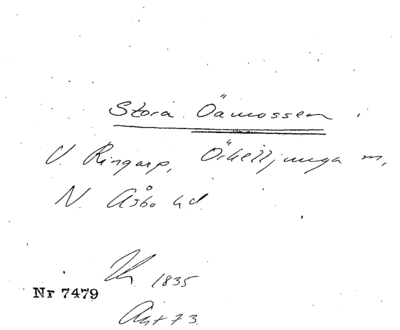 Stora Öamossen
V. Ringarp, Örkelljunga m,
N. Åsbo hd.
1835
Nr 7479
Akt 73.